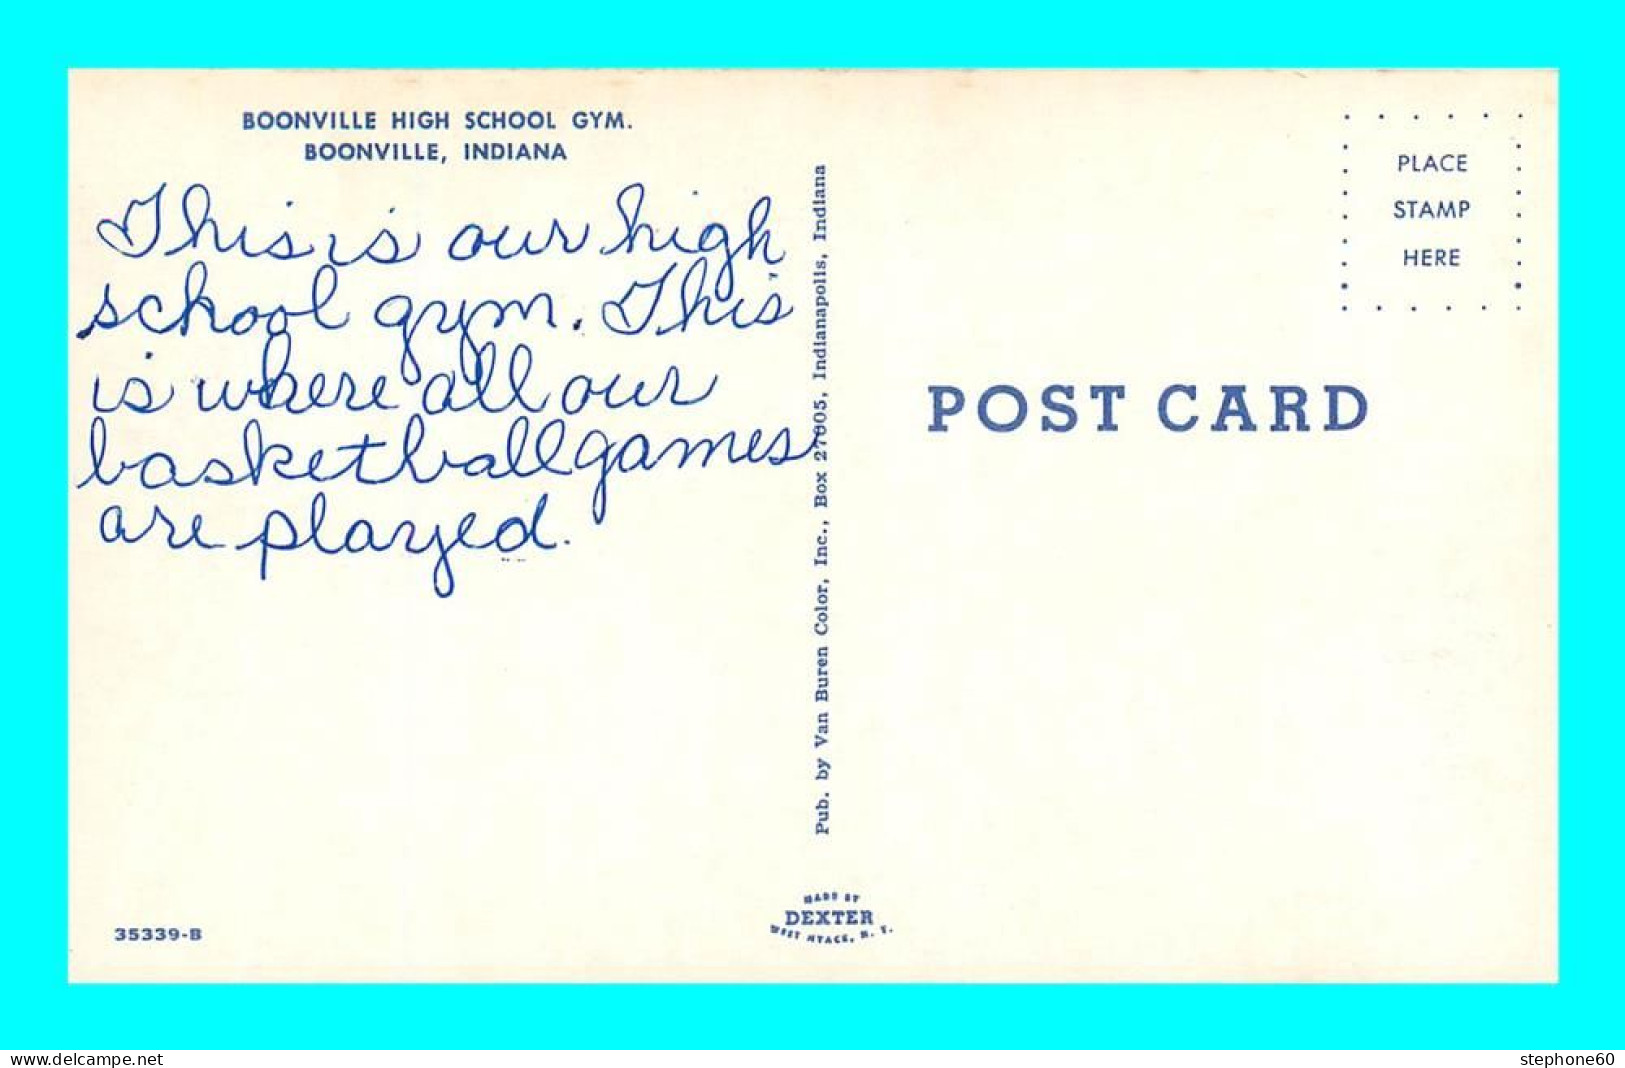 BOONVILLE HIGH SCHOOL GYM.
BOONVILLE, INDIANA
This is our high
school gym. This
is where all our
basketball games
are played.
35339-B
Pub. by Van Buren Color, Inc., Box 27005, Indianapolis, Indiana
MADE BY
DEXTER
WEST NYACK, N. Y.
PLACE
STAMP
HERE
POST CARD
www.delcampe.net
stephone60